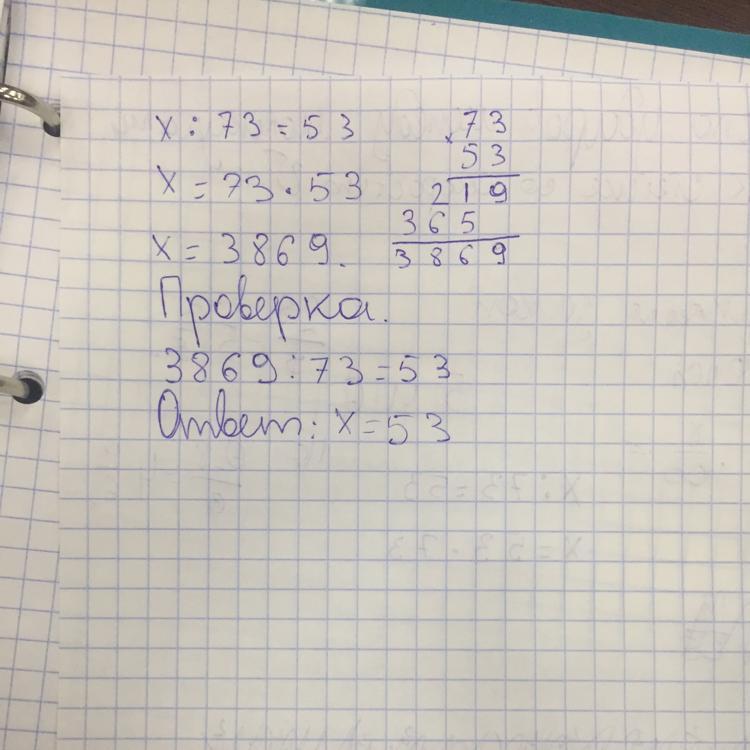 x : 73 = 53
x = 73 · 53
x = 3869.
73
× 53
219
365
3869
Проверка.
3869 : 73 = 53
Ответ: x = 53
x : 73 = 53
x = 53 · 73